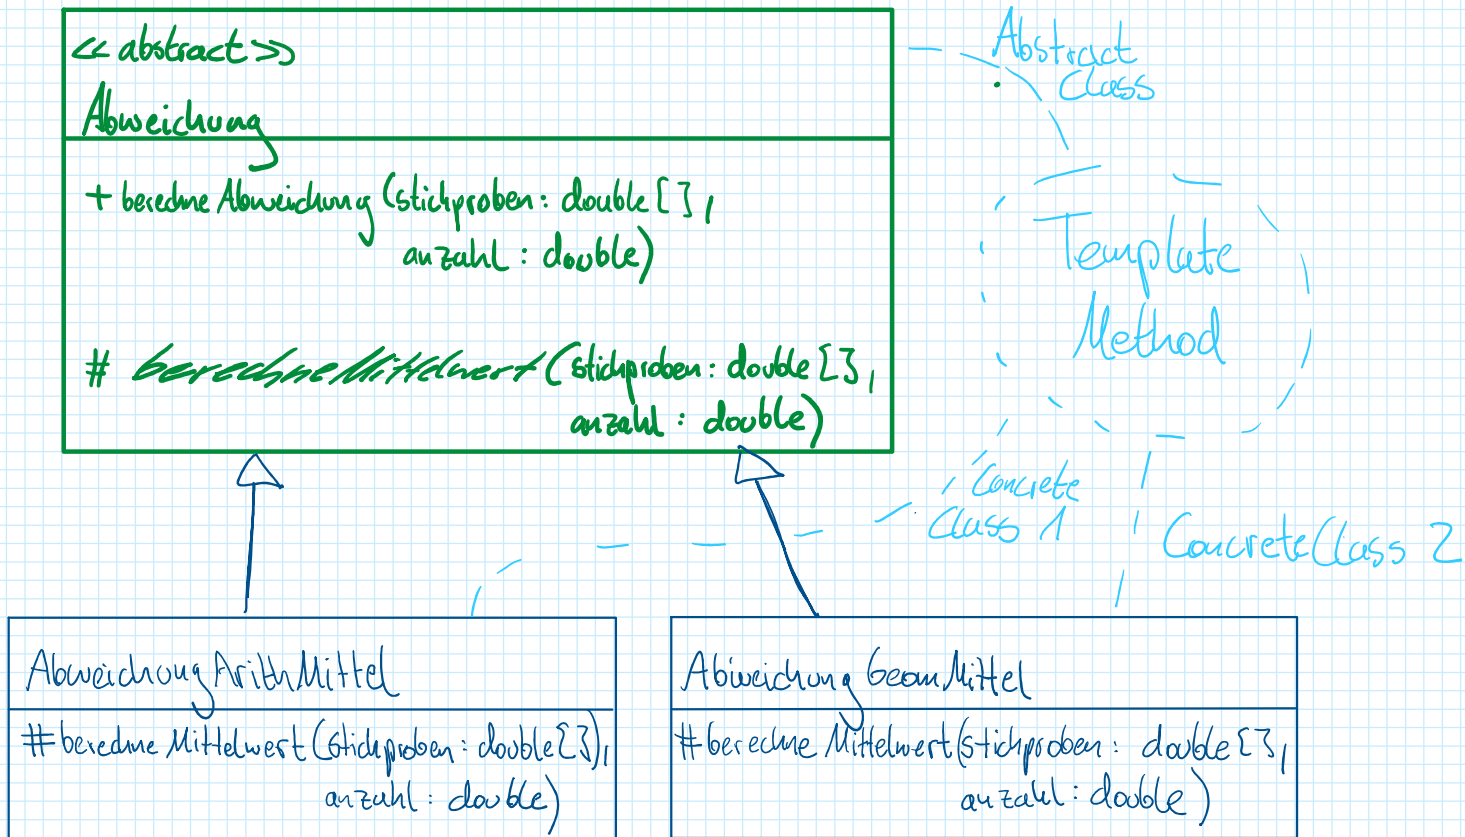 <<abstract>>
Abweichung
+ berechneAbweichung (stichproben: double[],
anzahl: double)
# berechneMittelwert (stichproben: double[],
anzahl: double)
Abstract
Class
Template
Method
Concrete
Class 1
ConcreteClass 2
AbweichungArithMittel
# berechneMittelwert (stichproben: double[]),
anzahl: double)
AbweichungGeomMittel
# berechneMittelwert (stichproben: double[],
anzahl: double)